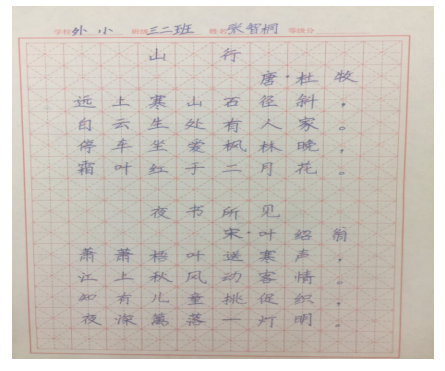 学校外小 班级三二班 姓名张智桐 等级分
山行
唐·杜牧
远上寒山石径斜，
白云生处有人家。
停车坐爱枫林晚，
霜叶红于二月花。
夜书所见
宋·叶绍翁
萧萧梧叶送寒声，
江上秋风动客情。
知有儿童挑促织，
夜深篱落一灯明。